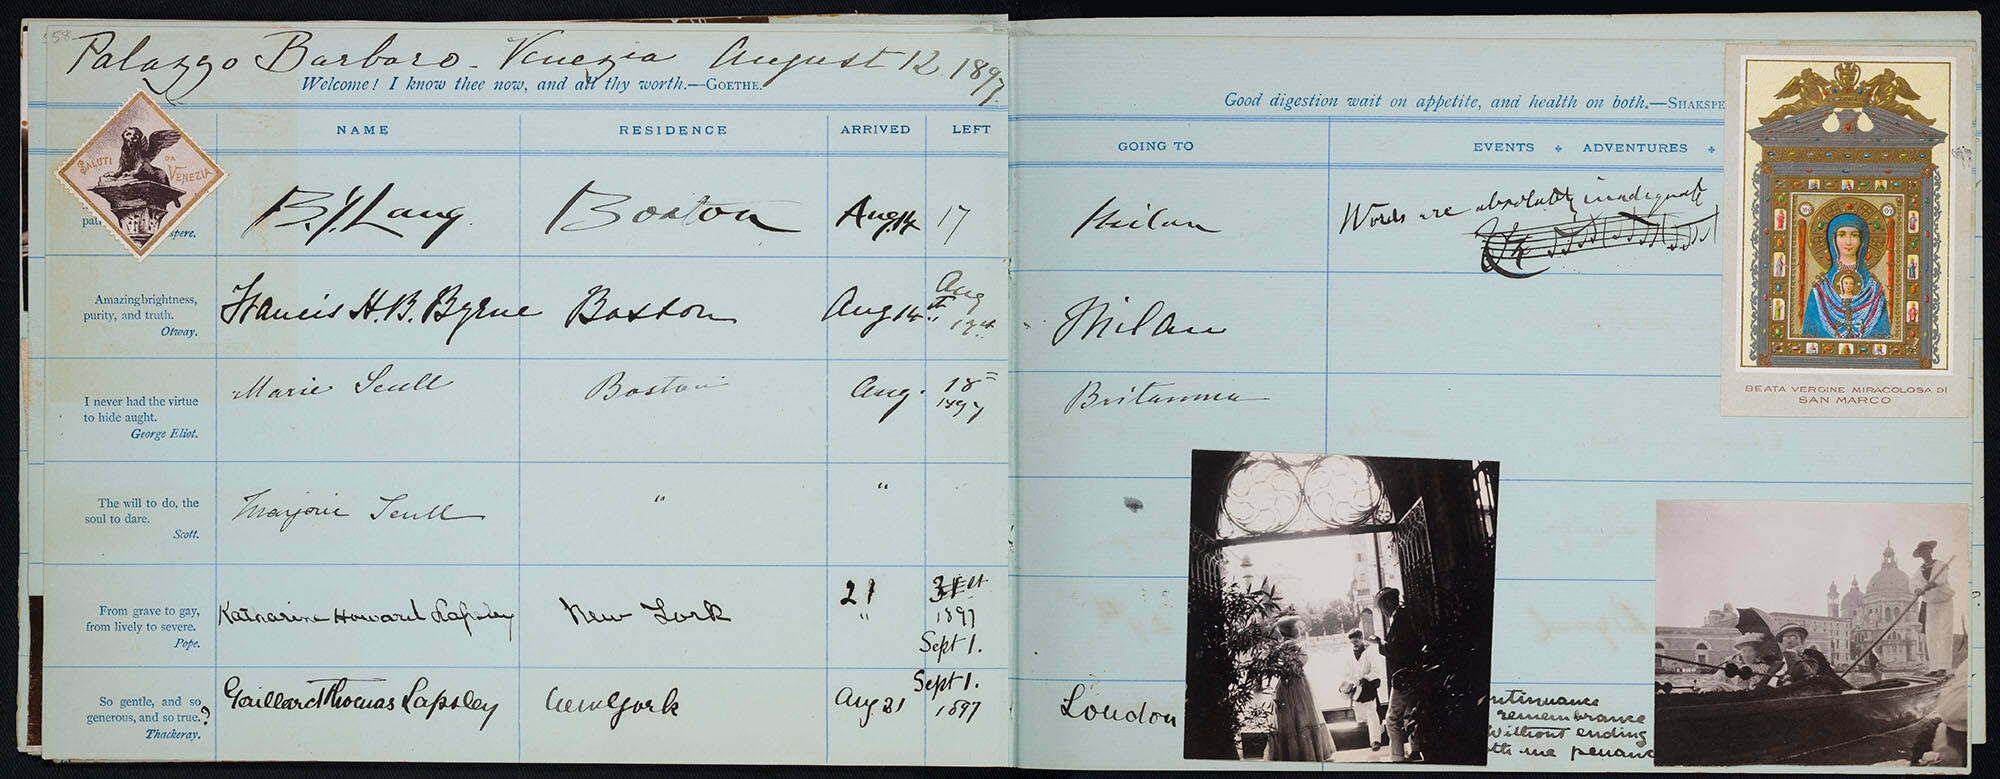 58
Palazzo Barbaro - Venezia August 12 1897
Welcome! I know thee now, and all thy worth.—GOETHE.
NAME RESIDENCE ARRIVED LEFT
SALUTI DA VENEZIA
spere.
B.J. Lang Boston Aug. 14 17
Amazing brightness,
purity, and truth.
Otway.
Francis H. B. Byrne Boston Aug 14th Aug
I never had the virtue
to hide aught.
George Eliot.
Marie Scull Boston Aug. 18
1897
The will to do, the
soul to dare.
Scott.
Marjorie Scull " "
From grave to gay,
from lively to severe.
Pope.
Katharine Howard Lapsley New York 21 " 31st
1897
Sept 1.
So gentle, and so
generous, and so true.?
Thackeray.
Gaillard Thomas Lapsley New York Aug 21 Sept 1.
1897
Good digestion wait on appetite, and health on both.—SHAKSPE
GOING TO EVENTS ADVENTURES
Milan Words are absolutely inadequate
Milan
Britannia
London
ntinuance
remembrance
Without ending
me penance
BEATA VERGINE MIRACOLOSA DI
SAN MARCO